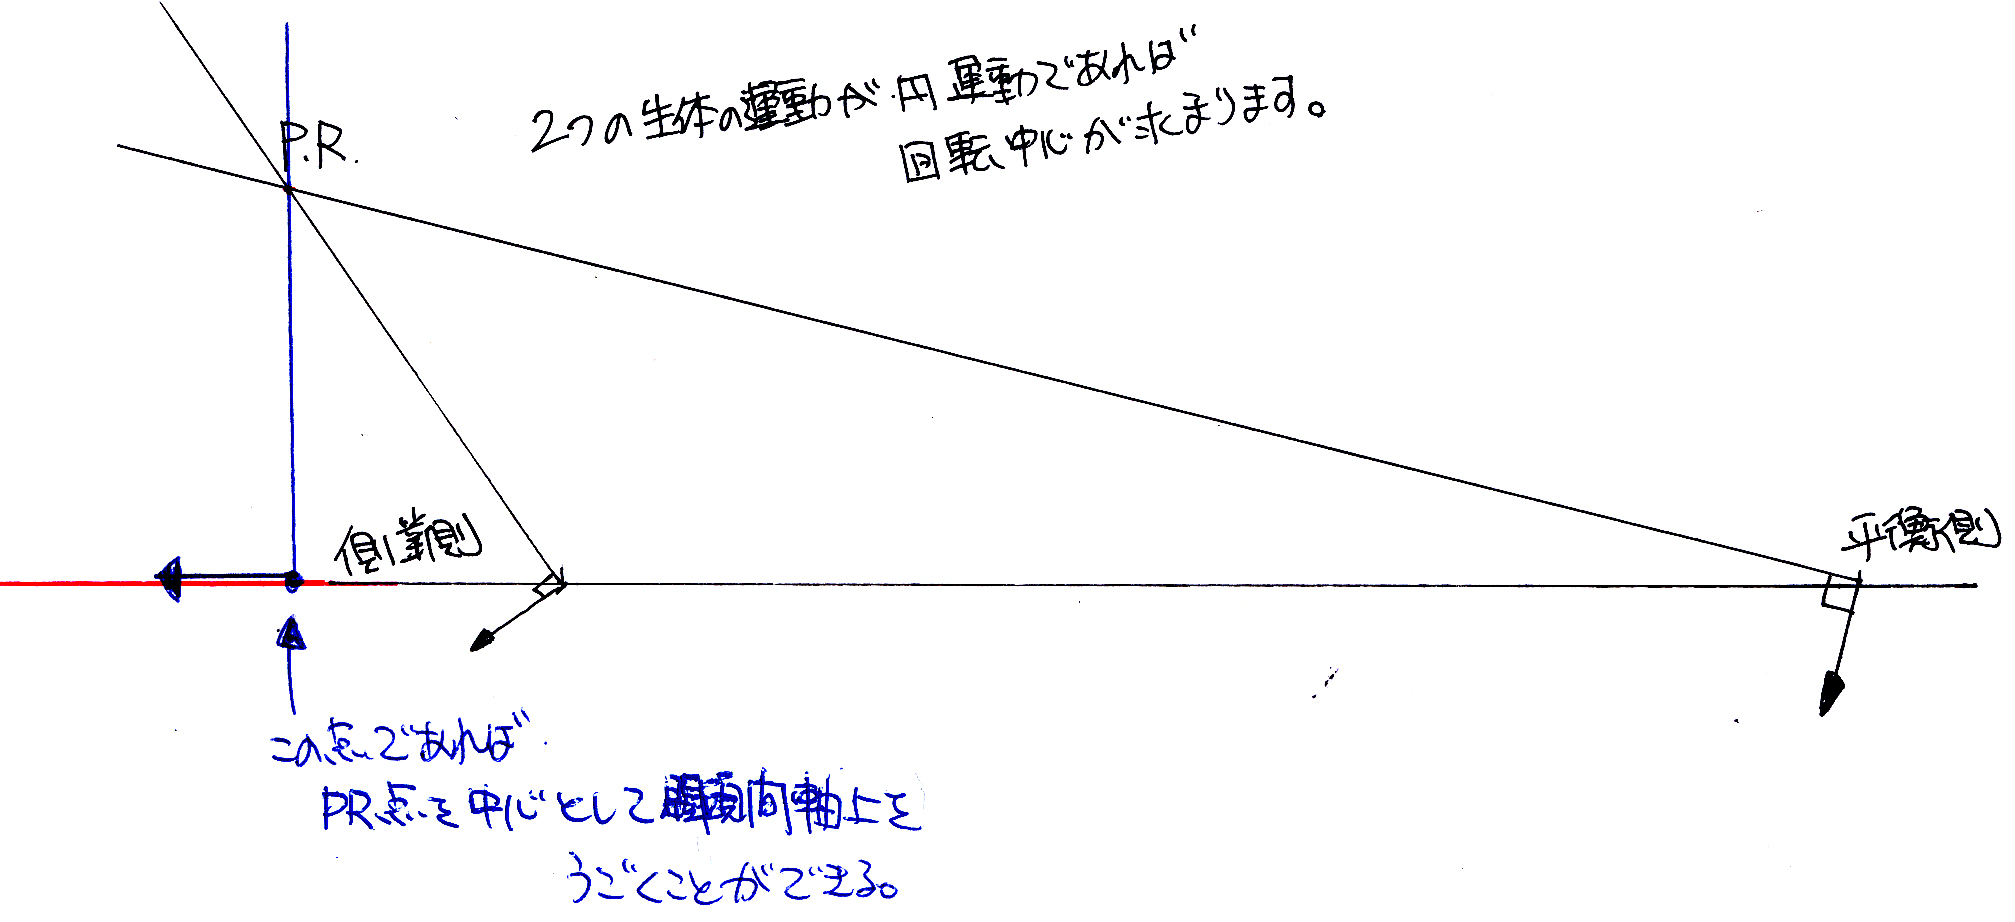 2つの生体の運動が円運動であれば
回転中心が求まります。
P.R.
側
平衡側
この点であれば
PR点を中心として瞬間軸上を
うごくことができる。